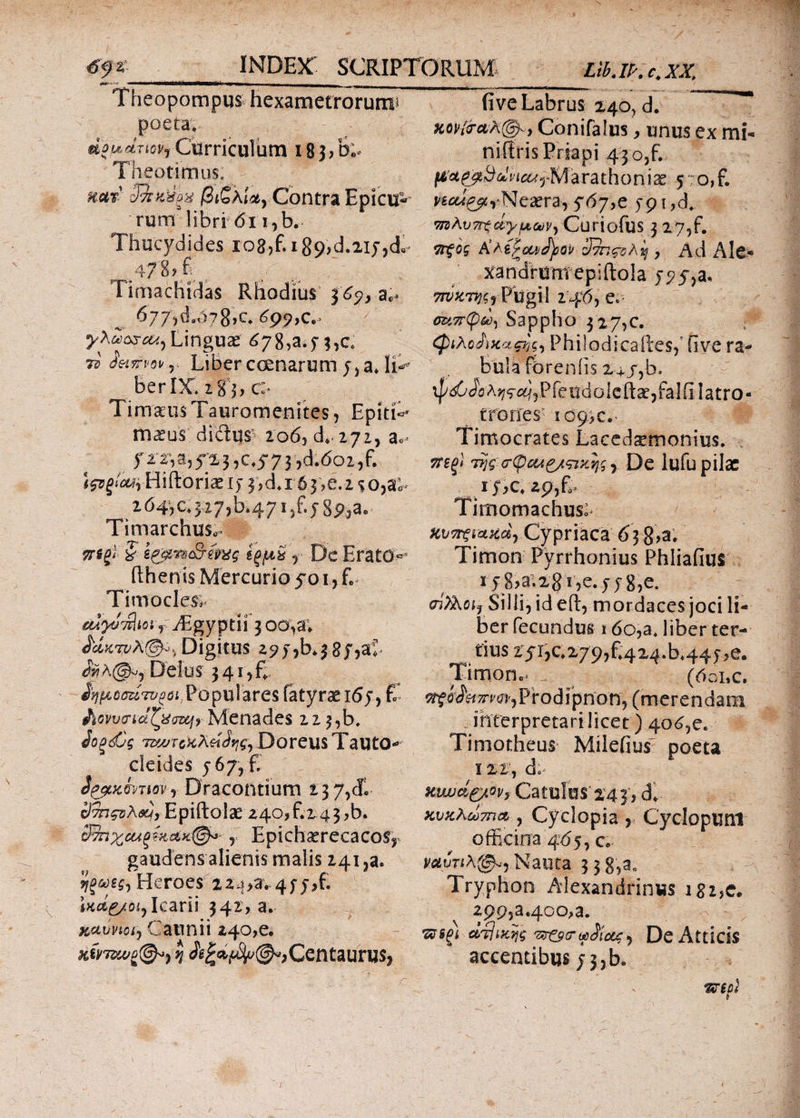 692 INDEX SCRIPTORUM Lib. IV. c. XX.
Theopompus hexametrorum
poeta.
ἁρμάτιον, Curriculum 183, b.
Theotimus.
κατ' Ἐπικούρου βιβλία, Contra Epicu-
rum libri 611, b.
Thucydides 108, f. 189, d. 215, d.
478, f.
Timachidas Rhodius 369, a.
677, d. 678, c. 699, c.
γλῶσσαι, Linguæ 678, a. 53, c.
τὸ δεῖπνον, Liber cœnarum 5, a. li-
ber IX. 283, c.
Timæus Tauromenites, Epiti-
mæus dictus 206, d. 272, a.
522, a, 523, c. 573, d. 602, f.
ἱστορίαι, Historiæ 153, d. 163, e. 250, a.
264, c. 327, b. 471, f. 589, a.
Timarchus.
περὶ τοῦ ἐρατοσθένους ἑρμοῦ, De Erato-
sthenis Mercurio 501, f.
Timocles.
αἰγύπτιοι, Ægyptii 300, a.
δάκτυλος, Digitus 295, b. 385, a.
δῆλος, Delus 341, f.
δημοσάτυροι Populares satyræ 165, f.
διονυσιάζουσαι, Menades 223, b.
δορεὺς ταυτοκλείδης, Doreus Tauto-
cleides 567, f.
δρακόντιον, Dracontium 237, d.
ἐπιστολαὶ, Epistolæ 240, f. 243, b.
ἐπιχαιρέκακος, Epichærecacos,
gaudens alienis malis 241, a.
ἥρωες, Heroes 224, a. 455, f.
ἰκάριοι, Icarii 342, a.
καύνιοι, Caunii 240, e.
κένταυρος, ἢ δεξαμενὸς, Centaurus,
sive Labrus 240, d.
κονίσαλος, Conisalus, unus ex mi-
nistris Priapi 430, f.
μαραθώνιαι, Marathoniæ 570, f.
νέαιρα, Neæra, 567, e 591, d.
πολυπράγμων, Curiosus 327, f.
πρὸς Ἀλέξανδρον ἐπιστολὴ, Ad Ale-
xandrum epistola 595, a.
πύκτης, Pugil 246, e.
σαπφὼ, Sappho 327, c.
φιλοδικαστὴς, Philodicastes, sive ra-
bula forensis 245, b.
ψευδολῃσταὶ, Pseudolestæ, falsi latro-
trones 109, c.
Timocrates Lacedæmonius.
περὶ τῆς σφαιριστικῆς, De lusu pilæ
15, c. 29, f.
Timomachus.
κυπριακὰ, Cypriaca 638, a.
Timon Pyrrhonius Phliasius
158, a. 281, e. 558, e.
σίλλοι, Silli, id est, mordaces joci li-
ber secundus 160, a. liber ter-
tius 251, c. 279, f. 424. b. 445, e.
Timon. (601, c.
προδείπνον, Prodipnon, (merendam
interpretari licet) 406, e.
Timotheus Milesius poeta
122, d.
κυνάριον, Catulus 243, d.
κυκλώπια, Cyclopia, Cyclopum
officina 465, c.
ναύτιλος, Nauta 338, a.
Tryphon Alexandrinus 182, e.
299, a. 400, a.
περὶ ἀττικῆς προσῳδίας, De Atticis
accentibus 53, b.
περὶ